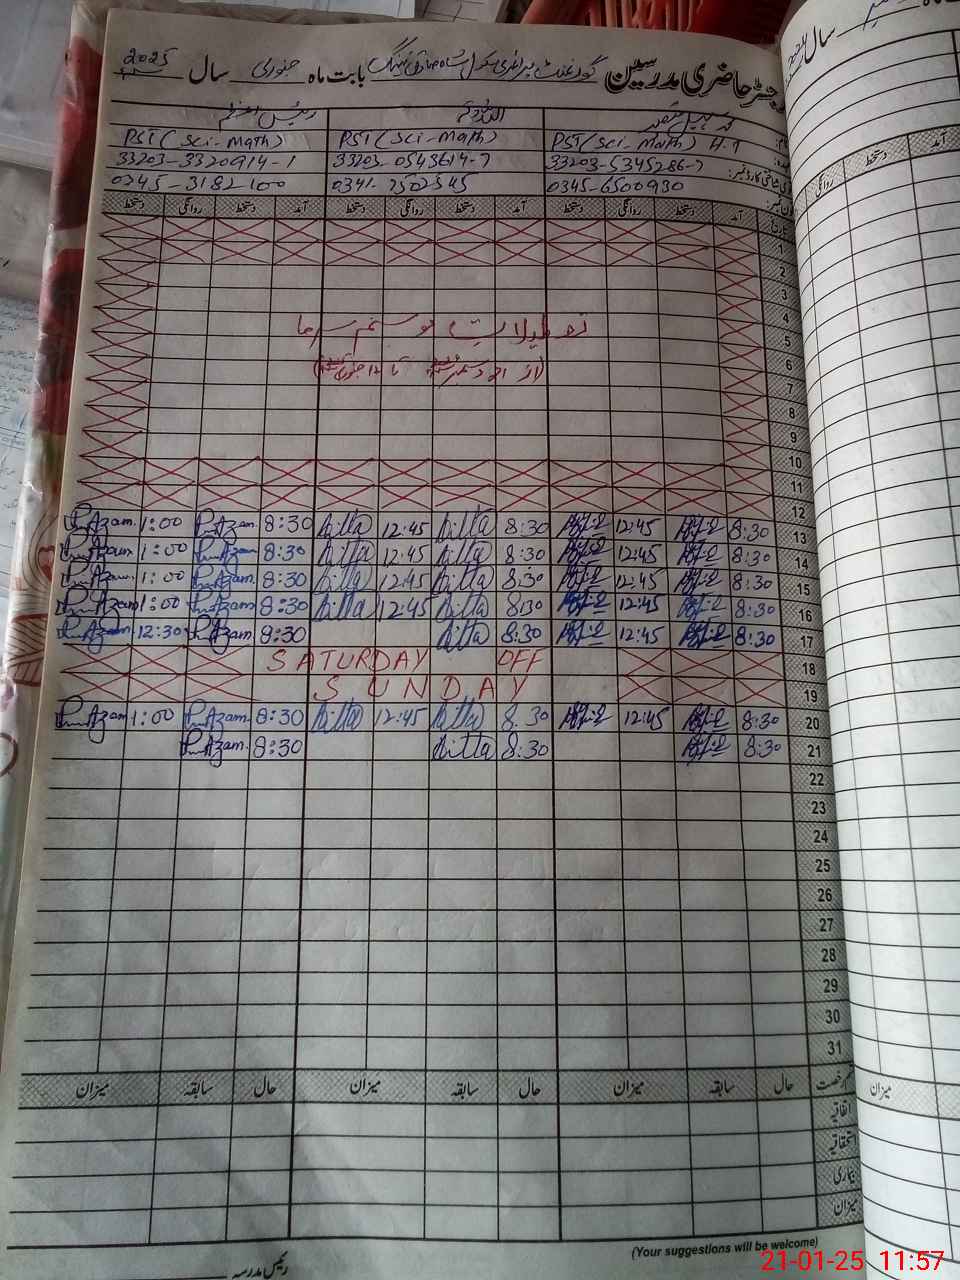 رجسٹر حاضری مدرسین گورنمنٹ پرائمری سکول بابت ماہ جنوری سال 2025
رئیس اعظم
PST (Sci-Math) PST (Sci-Math) PST (Sci-Math) H.T
33203-3320914-1 33203-0543614-7 33203-5345286-7
0345-3182100 0341-7502545 0345-6500930
آمد دستخط روانگی دستخط آمد دستخط روانگی دستخط آمد دستخط روانگی دستخط
1
2
3
4
تعطیلات موسم سرما
5
6
7
8
9
10
11
12
P.Azam 1:00 P.Azam 8:30 Aitta 12:45 Aitta 8:30 12:45 8:30 13
P.Azam 1:00 P.Azam 8:30 Aitta 12:45 Aitta 8:30 12:45 8:30 14
P.Azam 1:00 P.Azam 8:30 Aitta 12:45 Aitta 8:30 12:45 8:30 15
P.Azam 1:00 P.Azam 8:30 Aitta 12:45 Aitta 8:30 12:45 8:30 16
P.Azam 12:30 P.Azam 8:30 Aitta 8:30 12:45 8:30 17
SATURDAY OFF 18
SUNDAY 19
P.Azam 1:00 P.Azam 8:30 Aitta 12:45 Aitta 8:30 12:45 8:30 20
P.Azam 8:30 Aitta 8:30 8:30 21
22
23
24
25
26
27
28
29
30
31
رخصت حال سابقہ میزان حال سابقہ میزان حال سابقہ میزان
اتفاقیہ
استحقاقیہ
بیماری
میزان
(Your suggestions will be welcome)
رئیس مدرسہ
21-01-25 11:57